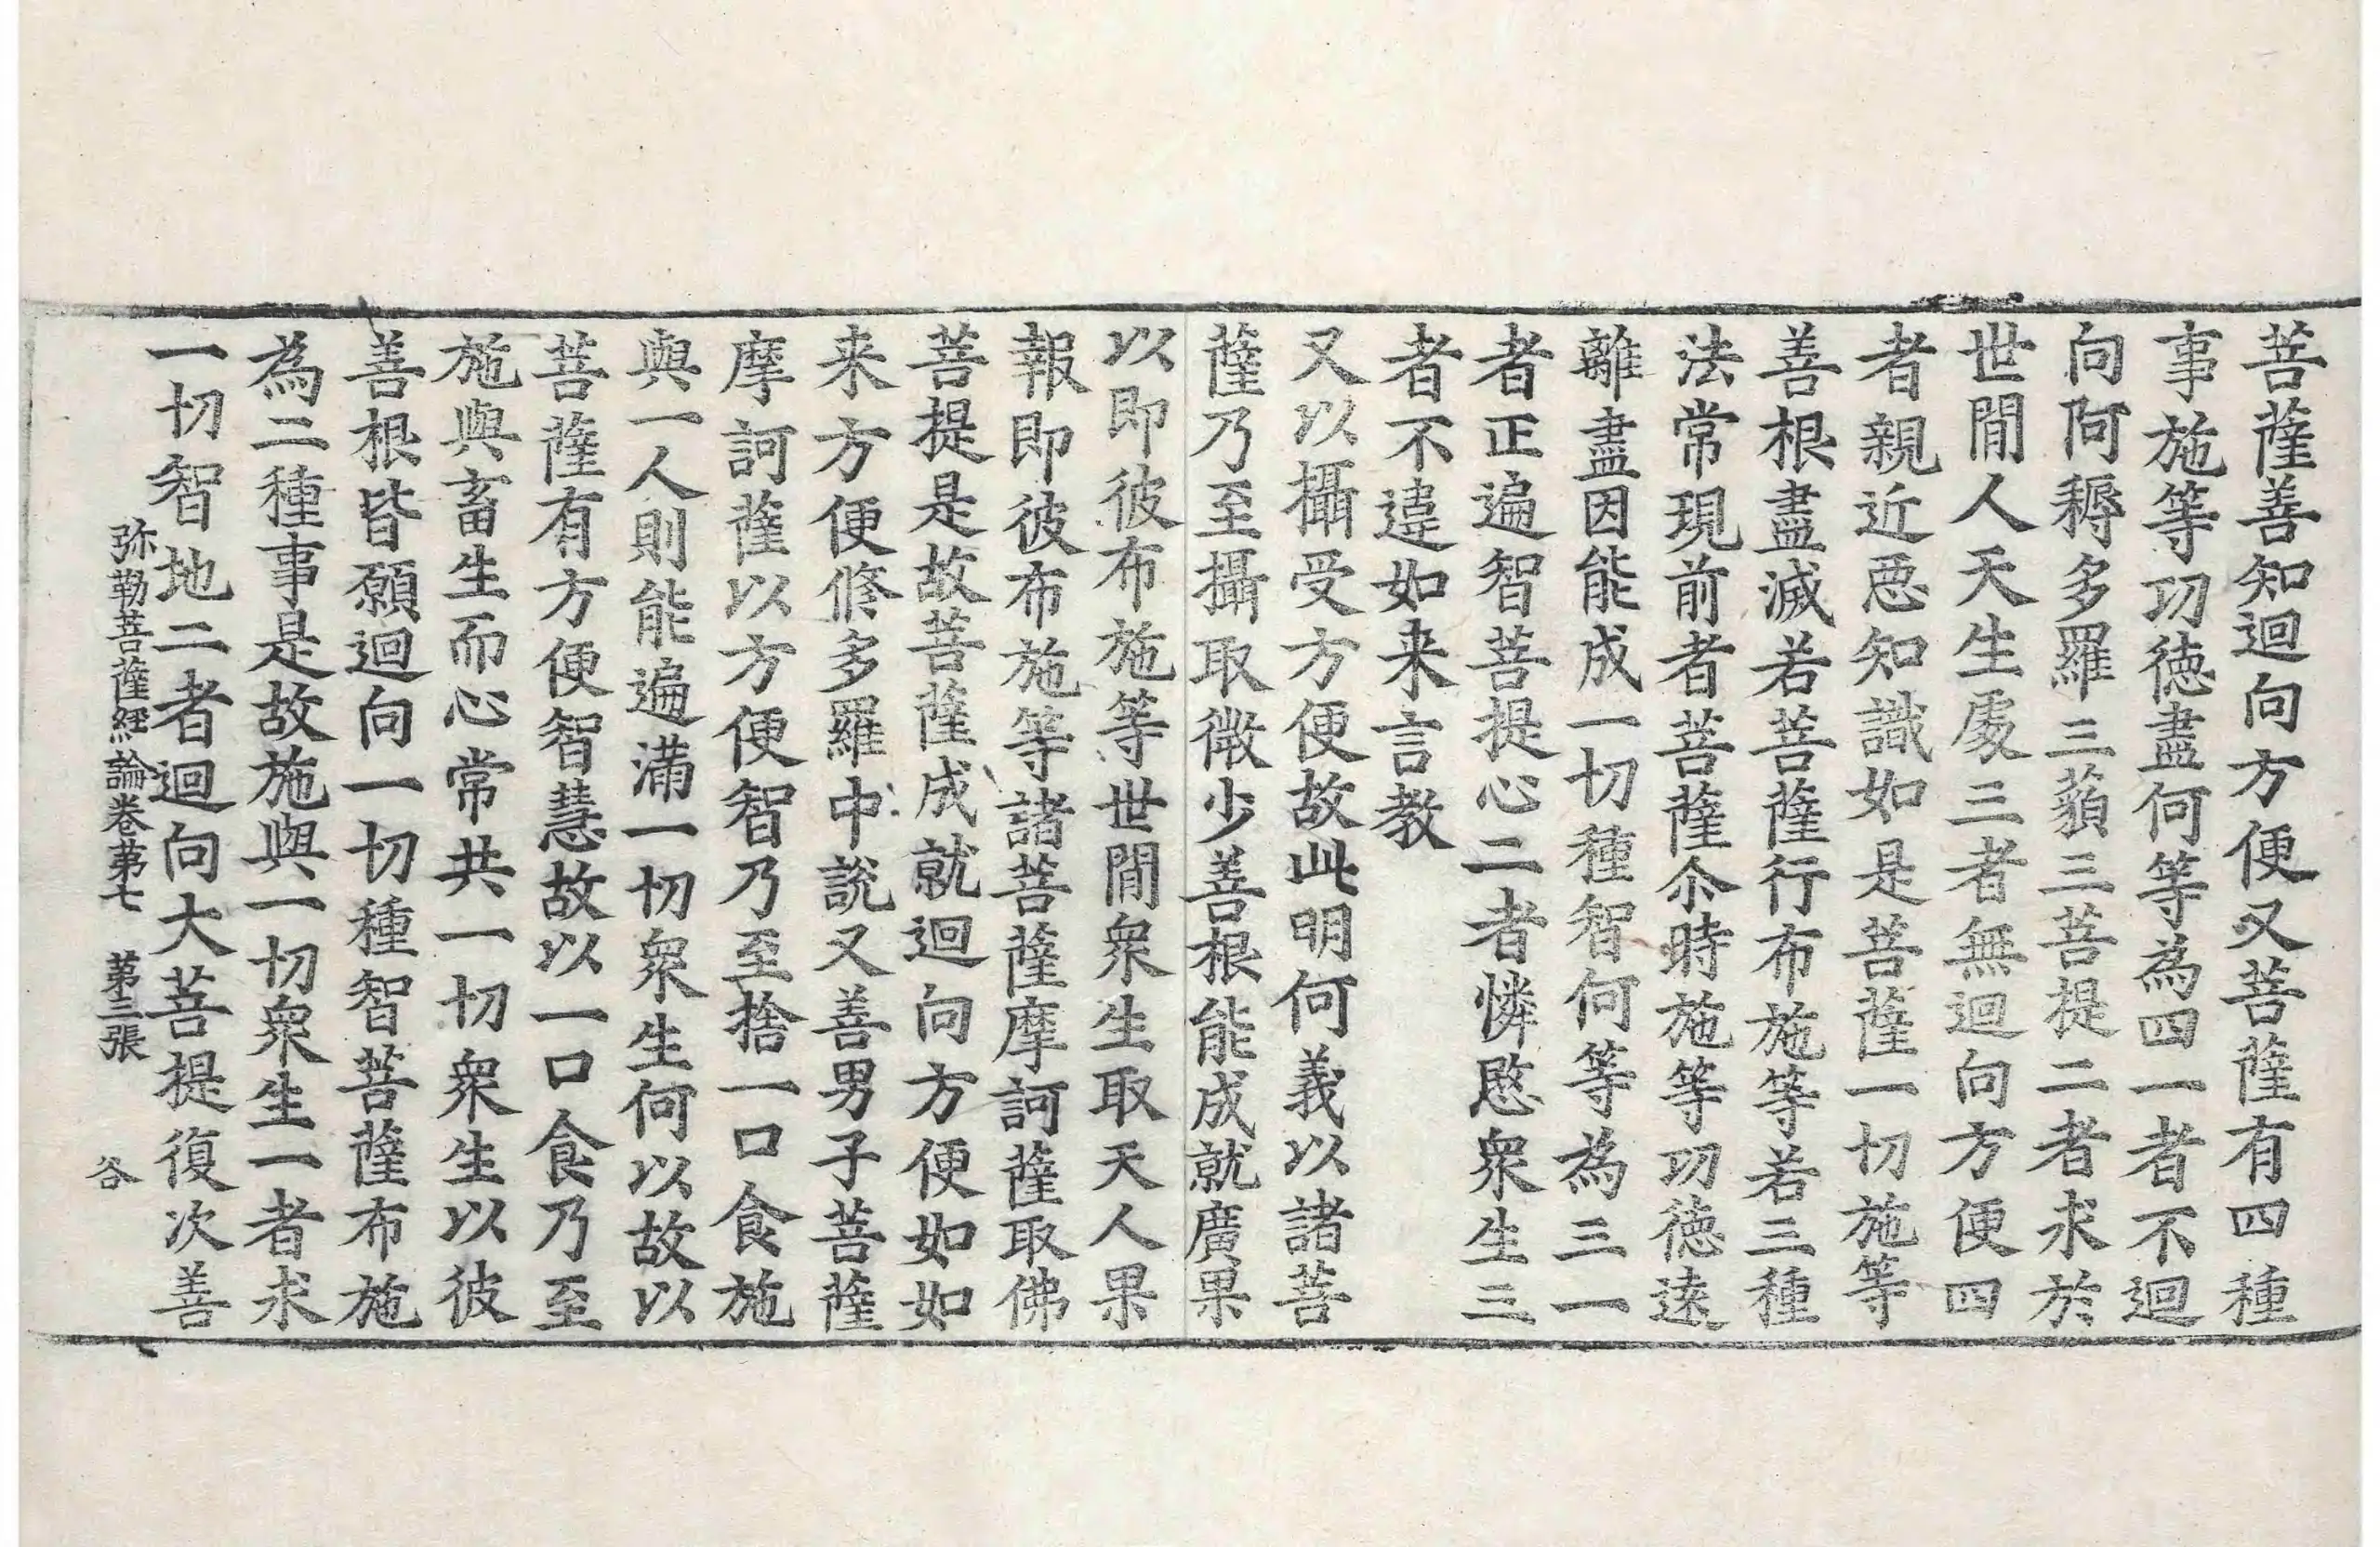 菩薩善知迴向方便又菩薩有四種
事施等功徳盡何等為四一者不迴
向阿耨多羅三藐三菩提二者求於
世閒人天生處三者無迴向方便四
者親近惡知識如是菩薩一切施等
善根盡滅若菩薩行布施等若三種
法常現前者菩薩尒時施等功徳遠
離盡因能成一切種智何等為三一
者正遍智菩提心二者憐愍衆生三
者不違如来言教
又以攝受方便故此明何義以諸菩
薩乃至攝取微少善根能成就廣果
以即彼布施等世閒衆生取天人果
報即彼布施等諸菩薩摩訶薩取佛
菩提是故菩薩成就迴向方便如如
来方便修多羅中說又善男子菩薩
摩訶薩以方便智乃至捨一口食施
與一人則能遍滿一切衆生何以故以
菩薩有方便智慧故以一口食乃至
施與畜生而心常共一切衆生以彼
善根皆願迴向一切種智菩薩布施
為二種事是故施與一切衆生一者求
一切智地二者迴向大菩提復次善
弥勒菩薩経論卷苐七 苐三張 谷